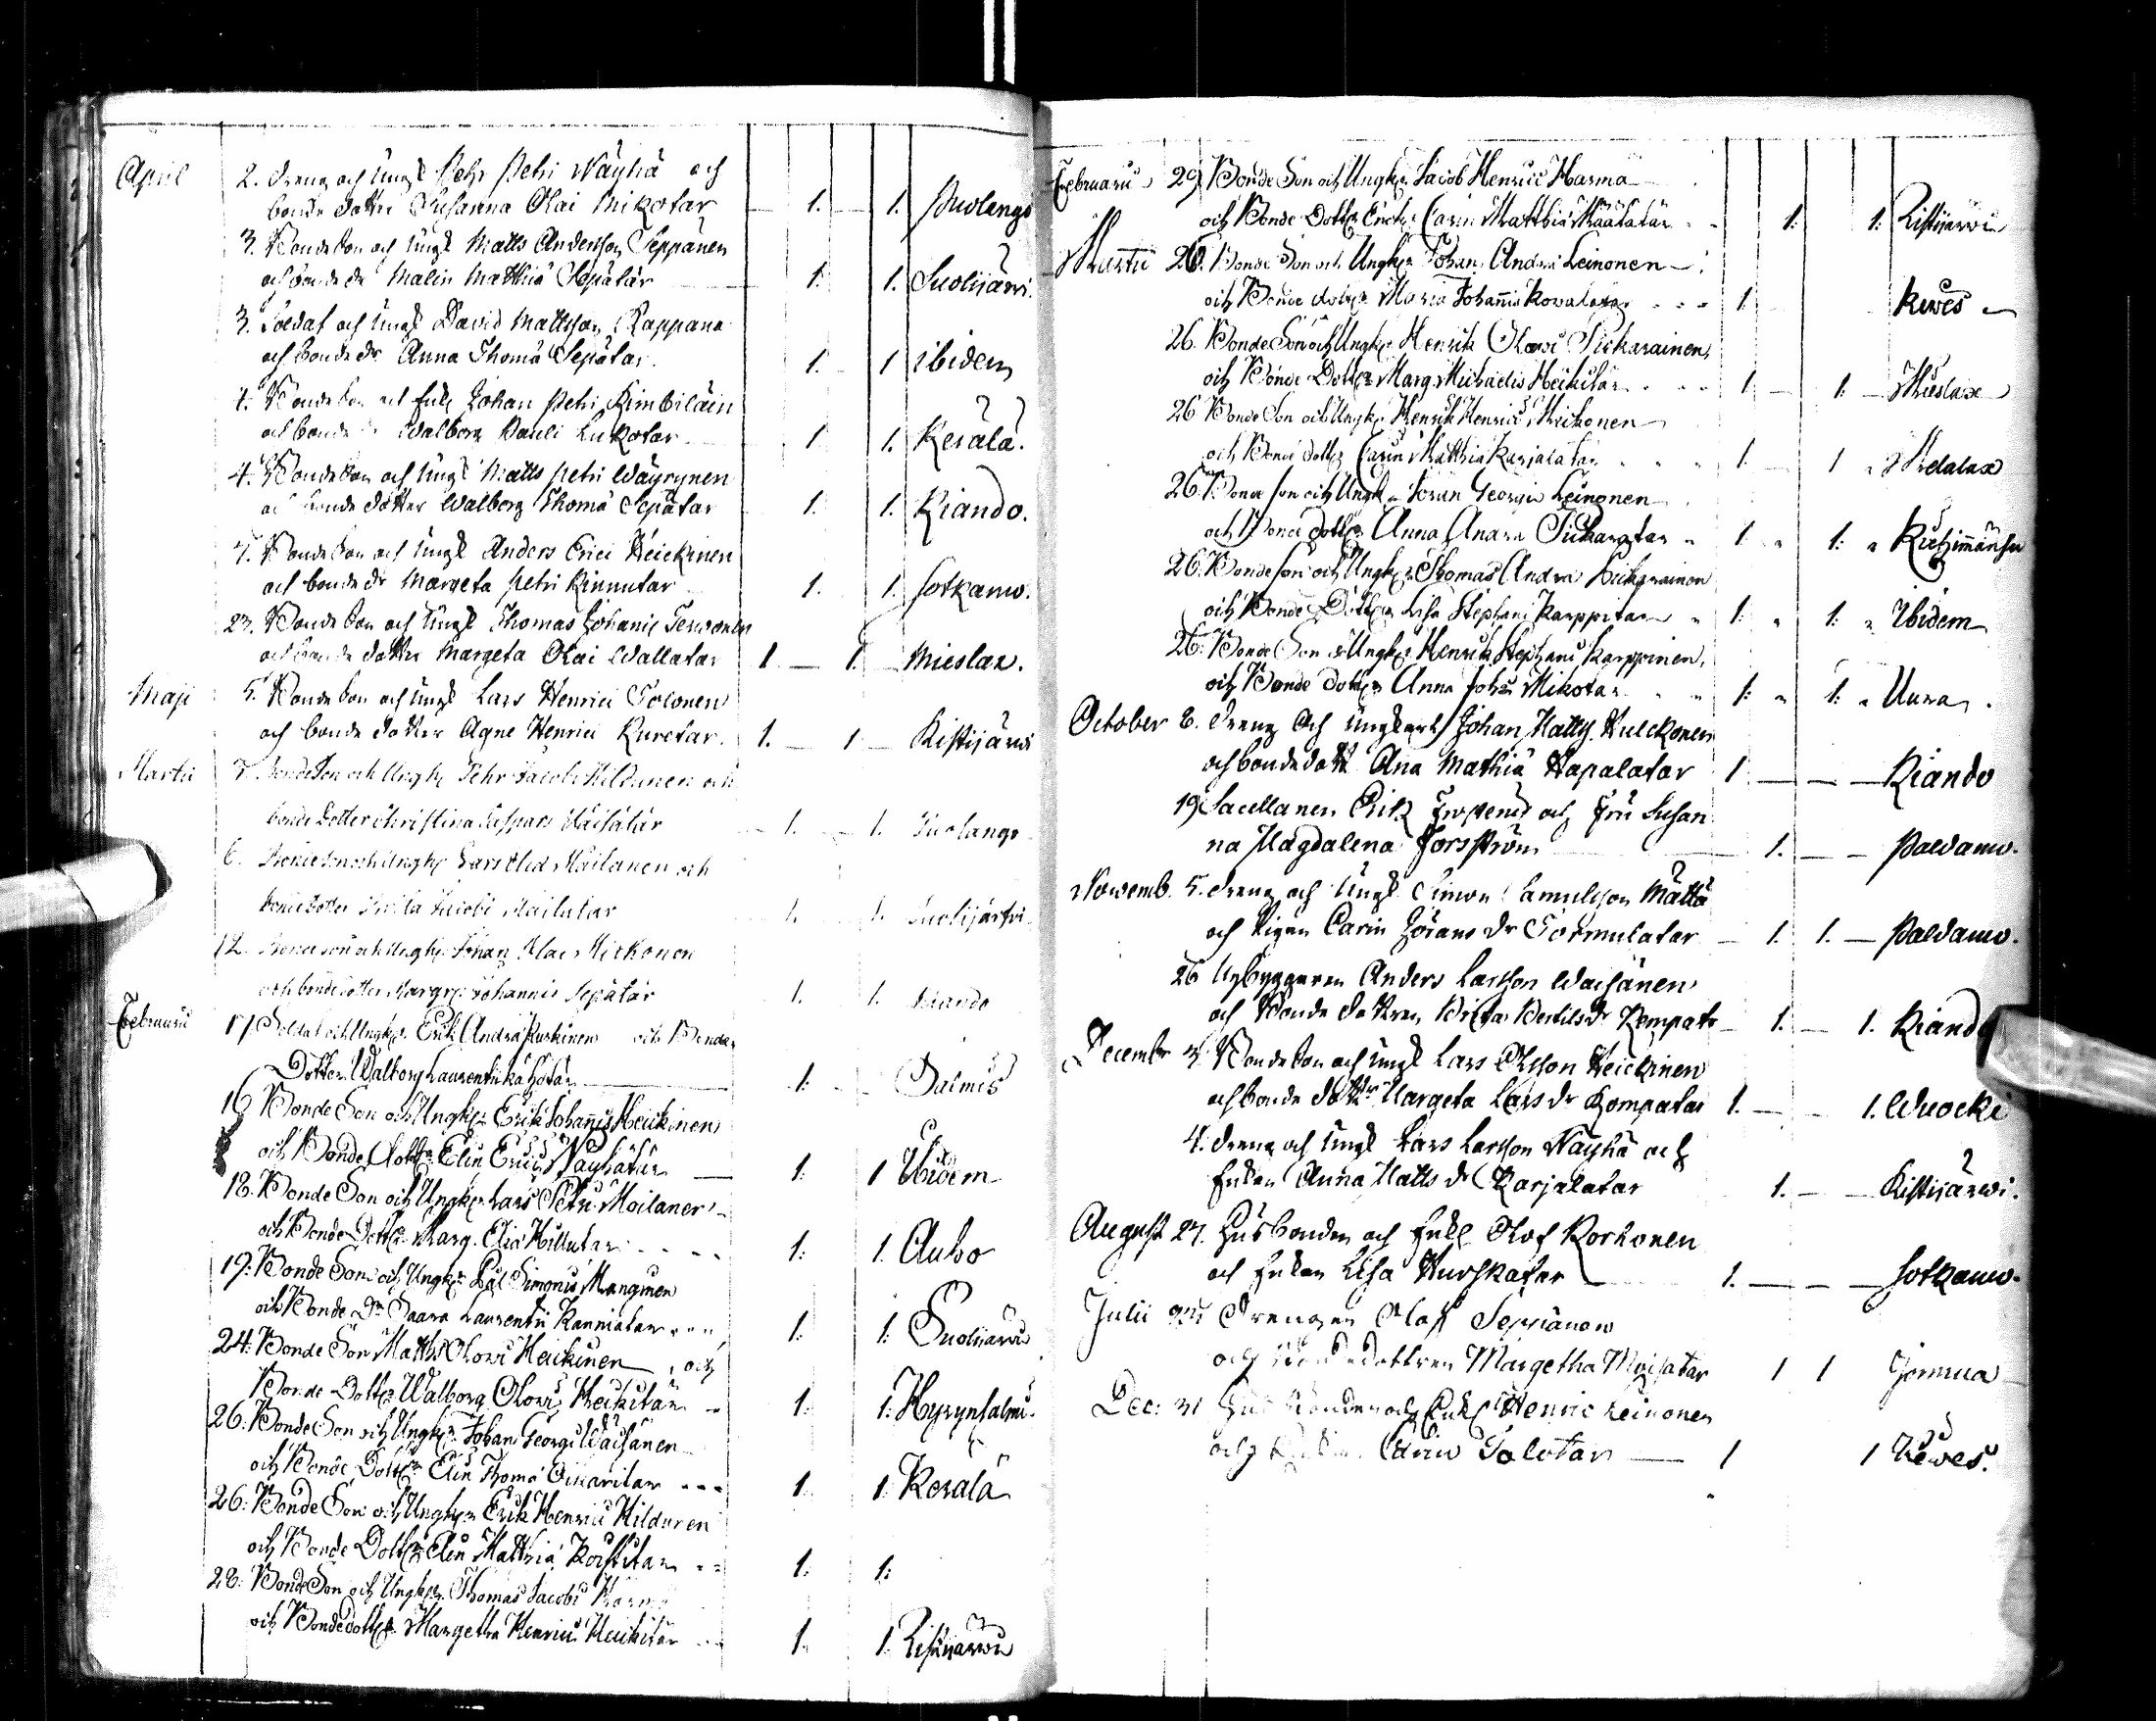 April 2. Dreng och Ungk Pehr Petri Näyhä och
bonde dotter Susanna Olai Mikotar 1. 1. Puolango
3. Bonde Son och Ungk Matts Andersson Seppänen
och bonde dr Malin Matthiä Sepätär 1. 1. Suolijärvi.
3. Soldat och Ungk David Mattsson Rappana
och bonde dr Anna Thomä Sepätar. 1. 1 ibidem
4. Bonde Son och Enkl Johan Petri Kimbiläin
och bonde Walborg Pauli Lukotar 1 1. Kerälä.
4. Bonde Son och Ungk Matts Petri Wäyrynen
och bonde dotter Walborg Thomä Sepätar 1. 1. Kiando.
7. Bonde Son och Ungk Anders Erici Heickinen
och bonde dr Margeta Petri Kinnutar 1. 1. Sotkamo.
23. Bonde Son och Ungk Thomas Johanis Terwonen
och bonde dotter Margeta Olai Wallatar 1. — 1. Mieslax.
Maji 5. Bonde Son och Ungk Lars Henrici Tolonen
och bonde dotter Agne Henrici Kuretar. 1. — 1 — Ristijärwi
Martii 5. Bonde Son och Ungk Pehr Jacobi Hildunen och
bonde Dotter Christina Caspars Wäisätär 1. 1. Puolango
6. Bonde Son och Ungk Lars Eliä Moilanen och
bonde dotter Brita Jacobi Mailatar 1. 1. Suolijärfvi
12. Bonde son och Ungk Johan Olai Mickonen
och bonde dotter Margr. Johannis Sepätär 1. 1. Kiando
Februarii 17 Soldat och Ungk Erik Andrä Kurkinen och Bonde
Dotter Walborg Laurentii Kähötär 1. Salmis
16 Bonde Son och Ungk Erik Johannis Heickinen
och Bonde Dotter Elin Erici Näyhätär 1. 1 Ibidem
18. Bonde Son och Ungk Lars Petri Moilanen
och Bonde Dotter Marg. Eliä Hillutar 1. 1. Auho
19. Bonde Son och Ungk Pål Simonis Manginen
och Bonde Dr Saara Laurentii Kanniatar 1. 1. Suolijärwi
24. Bonde Son Matts Olowi Heickinen och
Bonde Dotter Walborg Olowi Heikitär 1. 1. Hyrynsalmi.
26. Bonde Son och Ungk Johan Georgi Wäisänen
och Bonde Dotter Elin Thomä Oikaritar 1. 1. Kerälä
26. Bonde Son och Ungk Erik Henrici Hildunen
och Bonde Dotter Elin Matthiä 1. 1.
28. Bonde Son och Ungk Thomas Jacobi
och Bonde dotter Margetha Henrici Heikitär 1. 1. Ristijärwi
Februarii 29 Bonde Son och Ungk Jacob Henrici Harma
och Bonde Dotter Enck. Carin Matthiä Määtätär 1. 1. Ristijärwi
Martii 26. Bonde Son och Ungk Johan Andrä Leinonen
och Bonde dotter Maria Johannis Kowalatar 1. Kiwes
26. Bonde Son och Ungk Henrik Olowi Pickarainen
och Bonde Dotter Marg. Michaelis Heikitär 1. 1. Mieslax
26 Bonde Son och Ungk Henrik Henrici Mickonen
och Bonde dotter Carin Matthiä Karjalatar 1. 1 Melalax
26 Bonde Son och Ungk Jöran Georgii Leinonen
och Bonde dotter Anna Andrä Pickaratar 1. 1.
26. Bonde Son och Ungk Thomas Andrä Pickarainen
och Bonde Dotter Lisa Stephani Karppitar 1. 1. Ibidem
26. Bonde Son & Ungk Henrik Stephani Karppinen
och Bonde dotter Anna Johs Mikotar 1. 1. Uura.
October 6. Dreng Och Ungkarl Johan Matts. Hulckonen
och bonde dottr Ana Mathiä Hapalatar 1 — Kiando
19 Sacellanen Erik och Fru Susan
na Magdalena Forsström 1. — Paldamo.
Nowemb. 5. Dreng och Ungk Simon Samulsson Mättä
och Pigan Carin Jörans dr Tormulatar 1. 1. — Paldamo.
26 Nybyggaren Anders Larsson Waisänen
och Bonde dottren Brita Bertils dr Kempatr 1. — 1. Kiando
Decembr 3. Bonde Son och Ungk Lars Olsson Heickinen
och bonde dottr Margeta Lars dr Kompatar 1. — 1. Wuocki
4. Dreng och Ungk Lars Larsson Näyhä och
Enkan Anna Matts dr Karjalatar 1. — Ristijärwi.
August 27. Husbonden och Enkl Olof Korhonen
och Enkan Lisa Hurskatar 1. — Sotkamo.
Julii Drengen Olof Seppänen
och bondedottren Margetha Moisatar 1 1 Jormua
Dec: 31 Husbonden och Enkl Henric Leinonen
och Enkan Carin Talotar — 1 1 Kiwes.